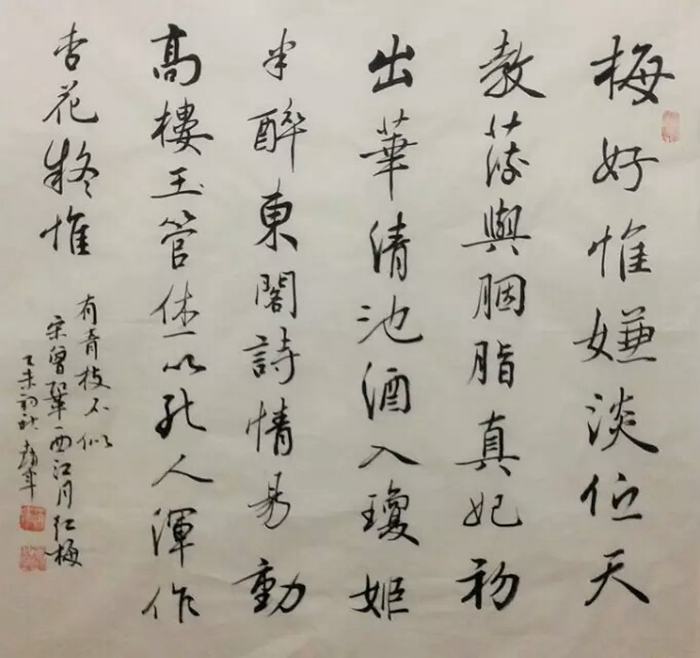 梅好惟嫌淡伫天
教薄與胭脂真妃初
出華清池酒入瓊姬
半醉東閣詩情易動
高樓玉管休吹北人渾作
杏花疑惟
有青枝不似
宋曾鞏西江月红梅
乙未初秋